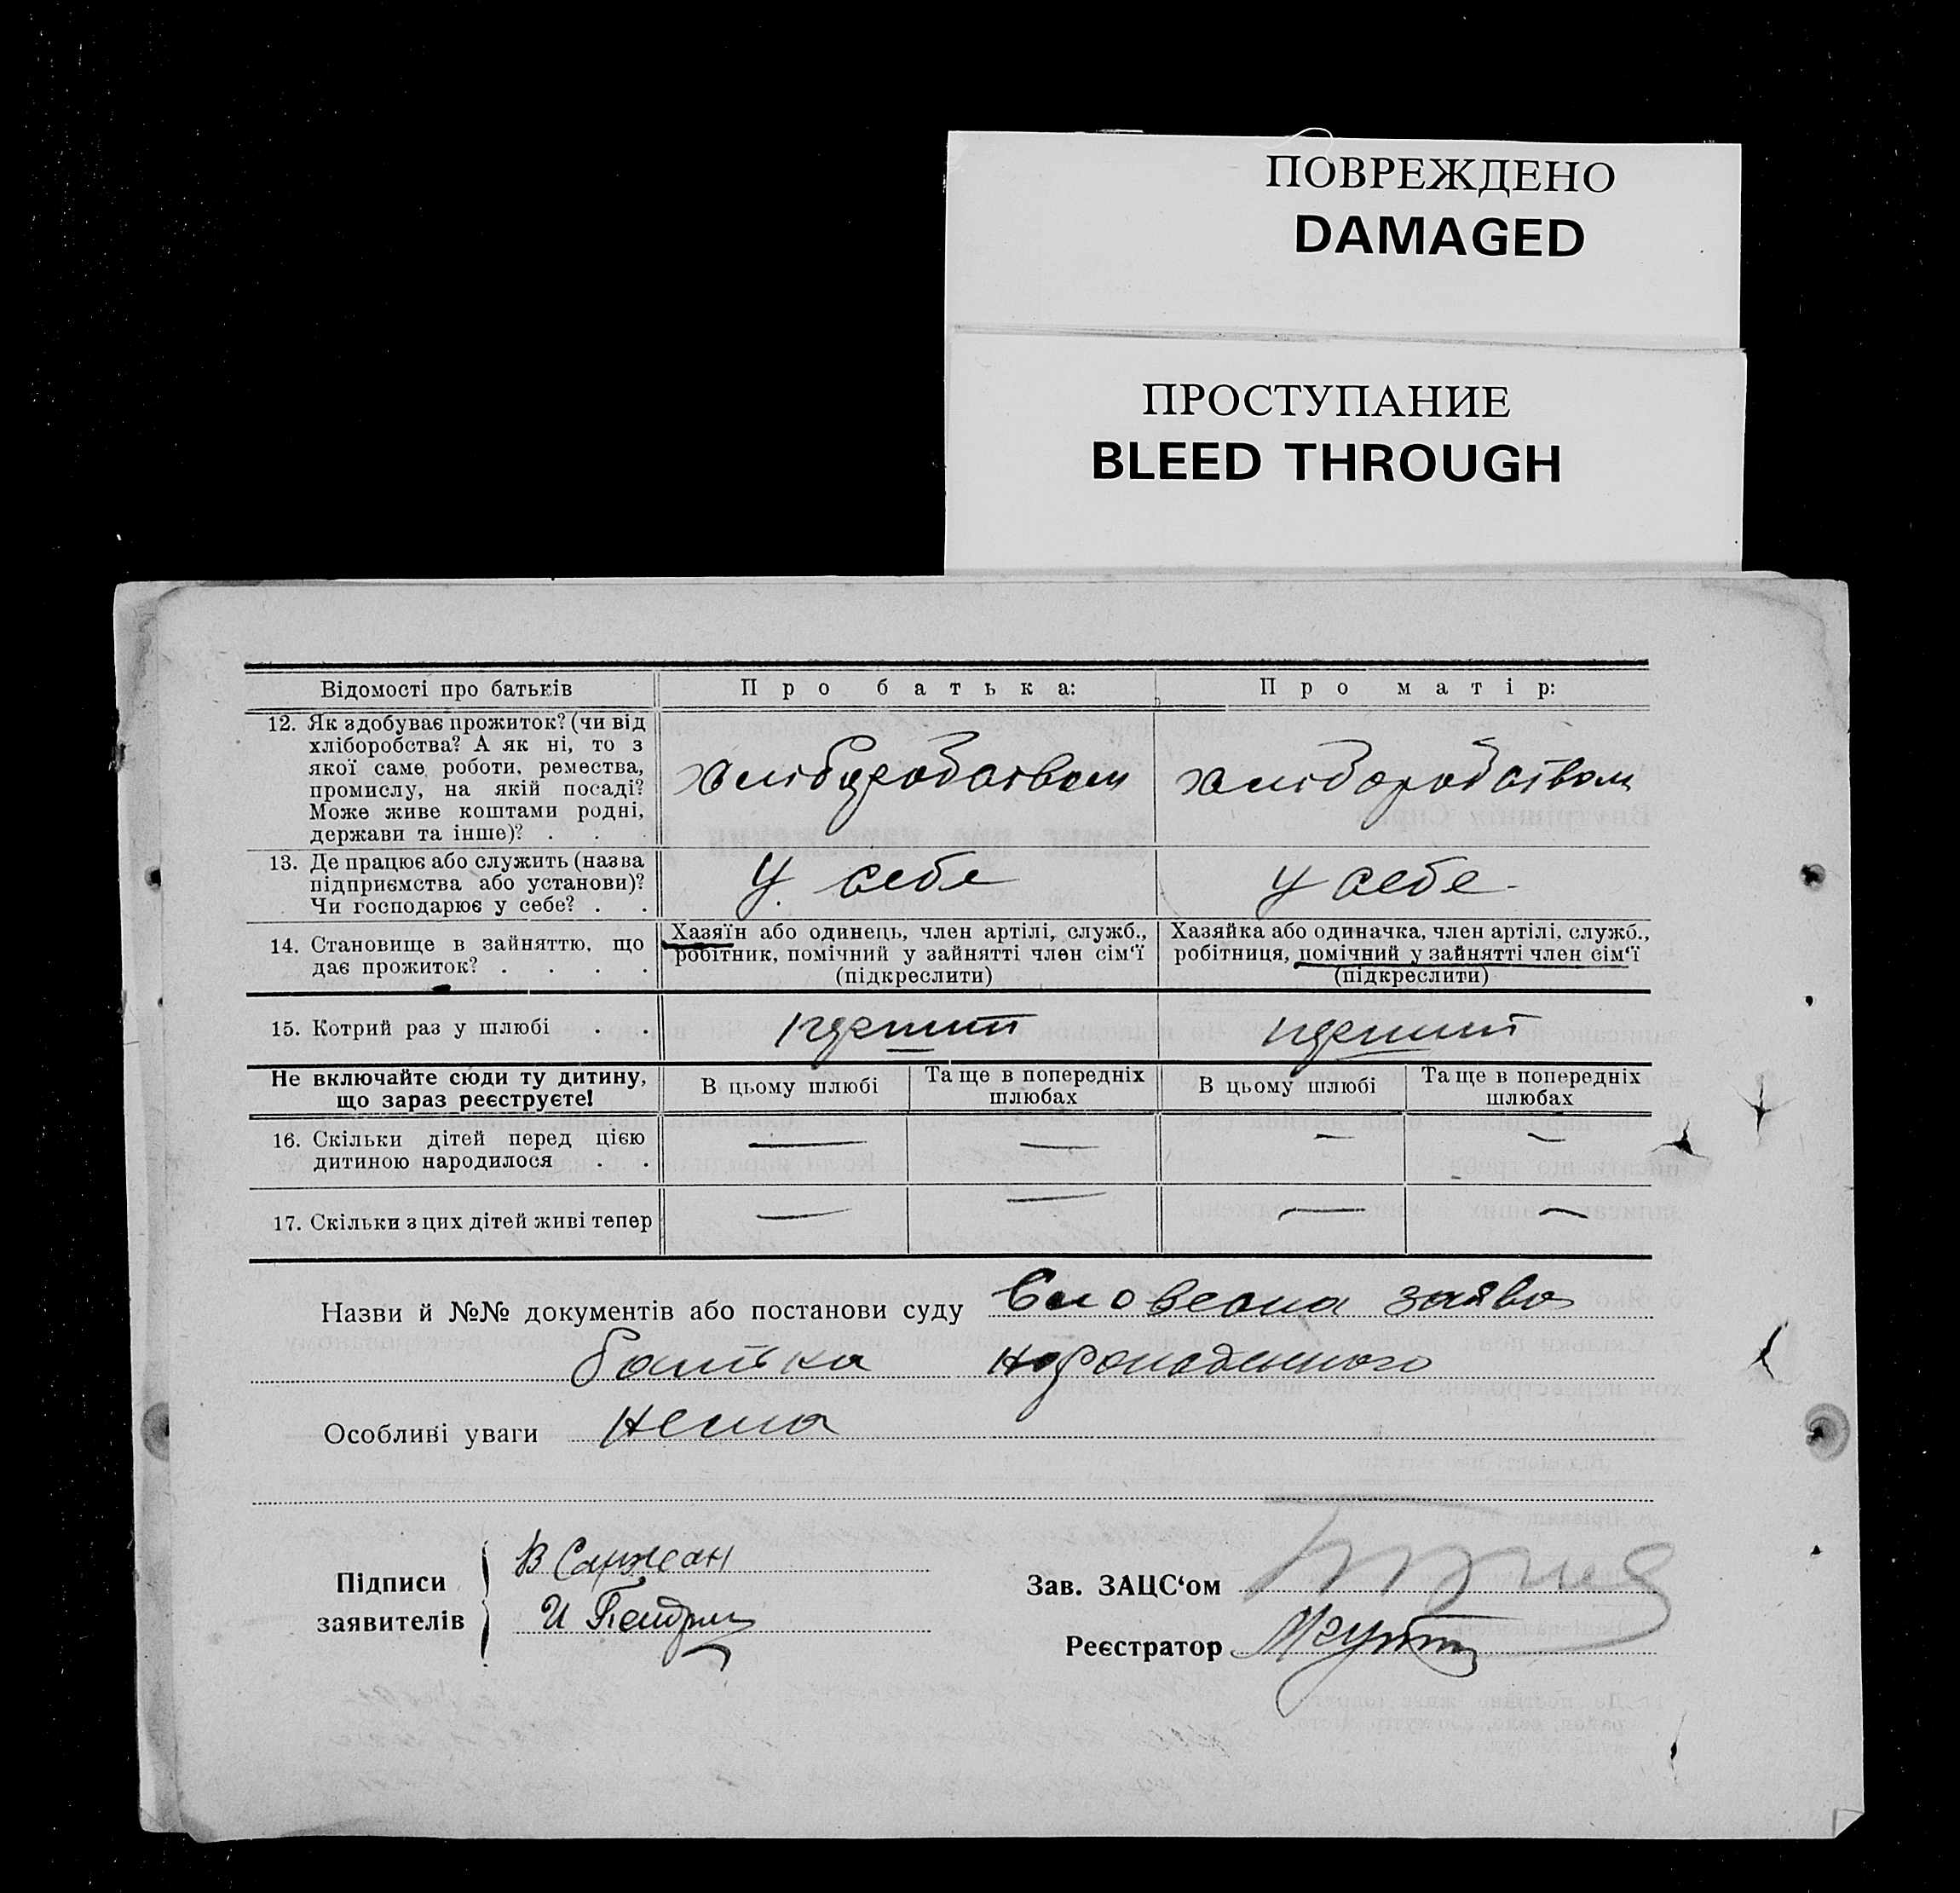 ПОВРЕЖДЕНО
DAMAGED
ПРОСТУПАНИЕ
BLEED THROUGH
Відомості про батьків
Про батька:
Про матір:
12. Як здобуває прожиток? (чи від
хліборобства? А як ні, то з
якої саме роботи, ремества,
промислу, на якій посаді?
Може живе коштами родні,
держави та інше)? . .
хліборобством
хліборобством
13. Де працює або служить (назва
підприємства або установи)?
Чи господарює у себе? . .
У себе
у себе
14. Становище в зайняттю, що
дає прожиток? . . . .
Хазяїн або одинець, член артілі, служб.,
робітник, помічний у зайнятті член сім‘ї
(підкреслити)
Хазяйка або одиначка, член артілі, служб.,
робітниця, помічний у зайнятті член сім‘ї
(підкреслити)
15. Котрий раз у шлюбі . .
перший
перший
Не включайте сюди ту дитину,
що зараз реєструєте!
В цьому шлюбі
Та ще в попередніх
шлюбах
В цьому шлюбі
Та ще в попередніх
шлюбах
16. Скільки дітей перед цією
дитиною народилося . .
— — — —
17. Скільки з цих дітей живі тепер
— — — —
Назви й №№ документів або постанови суду Словесна заява
батька народженного
Особливі уваги нема
Підписи
заявителів
В Саржан
И
Зав. ЗАЦС‘ом
Реєстратор